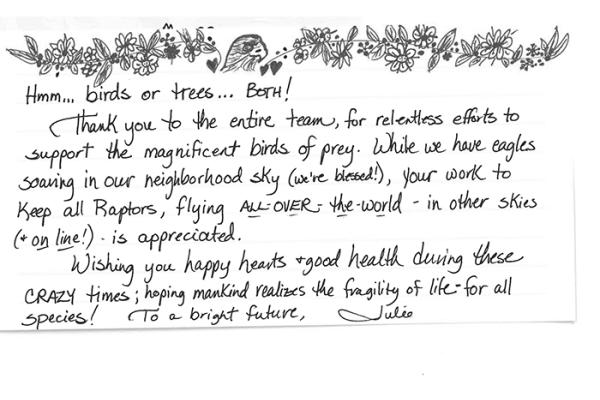 Hmm... birds or trees... BOTH!
Thank you to the entire team, for relentless efforts to
support the magnificent birds of prey. While we have eagles
soaring in our neighborhood sky (we're blessed!), your work to
Keep all Raptors, flying ALL-OVER-the-world - in other skies
(+ on line!) - is appreciated.
Wishing you happy hearts + good health during these
CRAZY times; hoping mankind realizes the fragility of life-for all
species! To a bright future, Julie